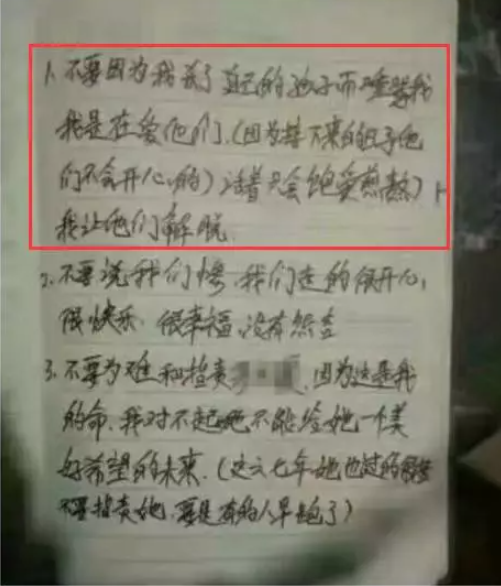 1、不要因为我杀了自己的孩子而难受我
我是在爱他们.(因为接下来的日子他
们不会开心的)活着只会饱受煎熬)
我让他们解脱.
2、不要说我们惨.我们走的很开心,
很快乐.很幸福.没有怨言
3、不要为难和指责 .因为这是我
的命.我对不起她不能给她一个美
好希望的未来.(这六七年她也过的
不要指责她.要是有的人早跑了)